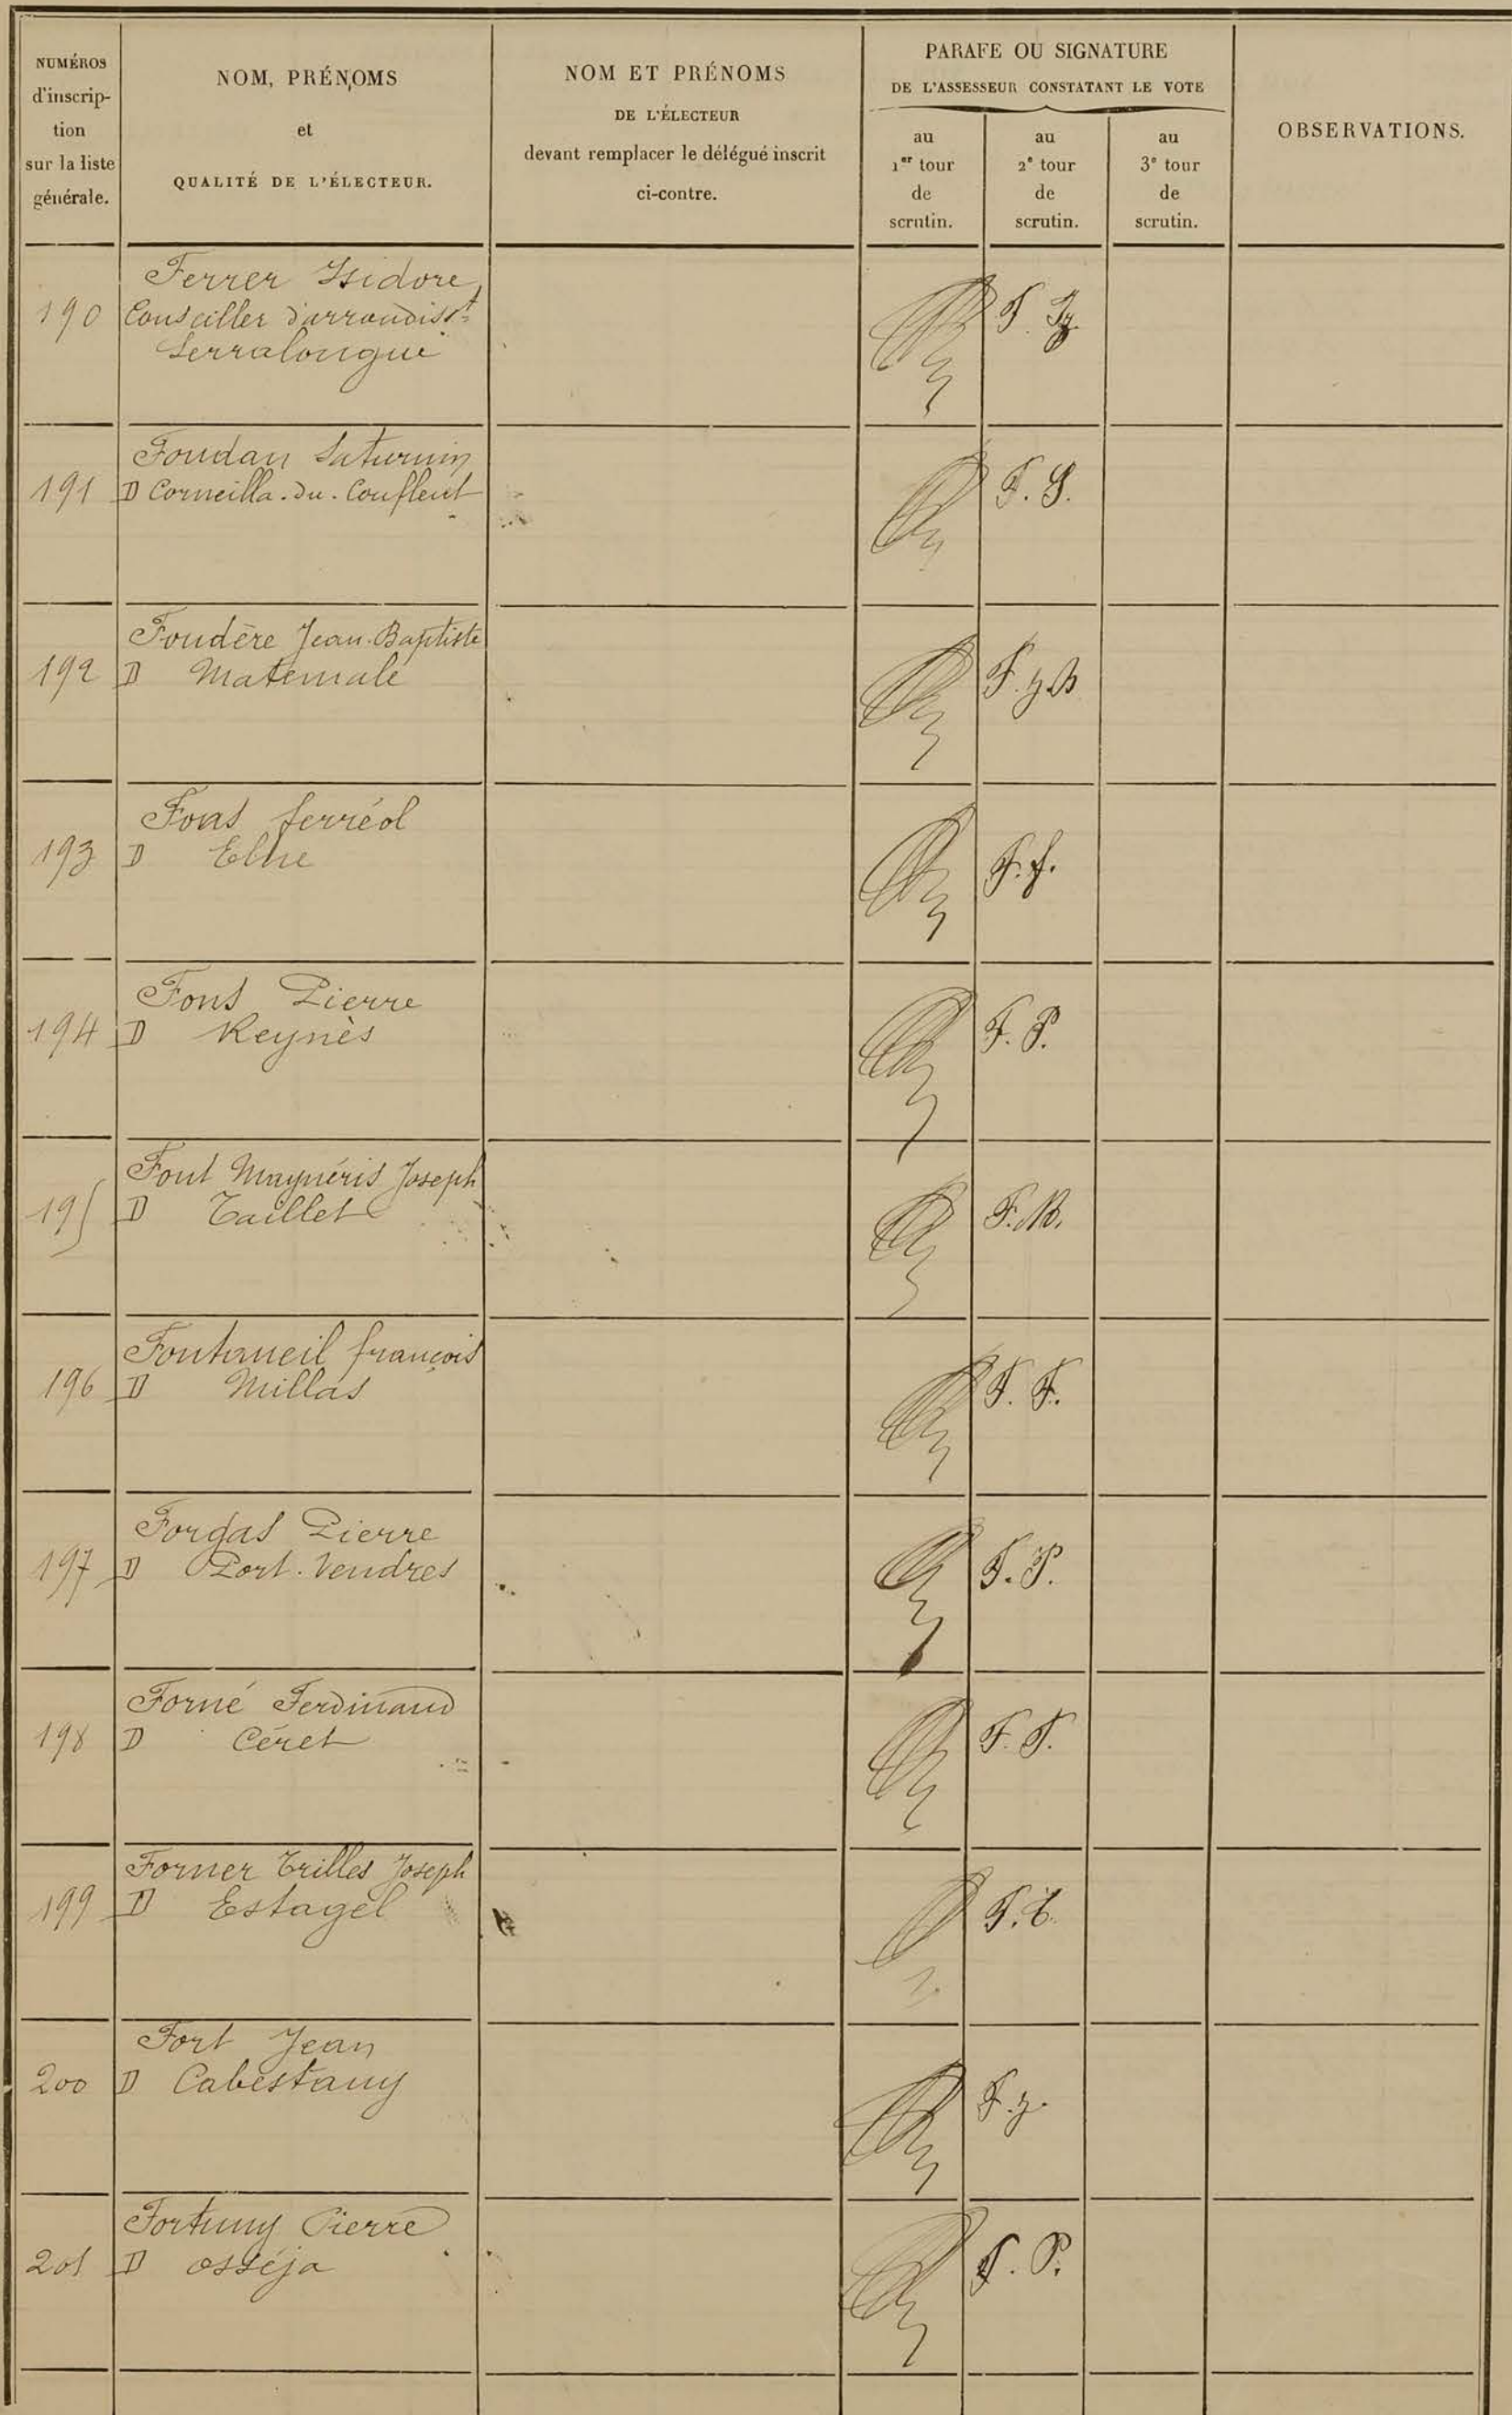 NUMÉROS
d'inscrip-
tion
sur la liste
générale.
NOM, PRÉNOMS
et
QUALITÉ DE L'ÉLECTEUR.
NOM ET PRÉNOMS
DE L'ÉLECTEUR
devant remplacer le délégué inscrit
ci-contre.
PARAFE OU SIGNATURE
DE L'ASSESSEUR CONSTATANT LE VOTE
au
1er tour
de
scrutin.
au
2e tour
de
scrutin.
au
3e tour
de
scrutin.
OBSERVATIONS.
Ferrer Isidore,
190 Conseiller d'arrondisst F. Iz.
Serralongue
Foudan Saturnin
191 D Corneilla-du-Conflent F. S.
Foudère Jean-Baptiste
192 D Matemale F. J B
Fons ferréol
193 D Elne F. f.
Fons Pierre
194 D Reynès F. P.
Font Maynéris Joseph
195 D Taillet F. M.
Fontaneil françois
196 D Millas F. F.
Forgas Pierre
197 D Port-Vendres F. P.
Forné Ferdinand
198 D Céret F. F.
Forner Trilles Joseph
199 D Estagel F. T.
Fort Jean
200 D Cabestany F. J.
Fortuny Pierre
201 D Osséja F. P.